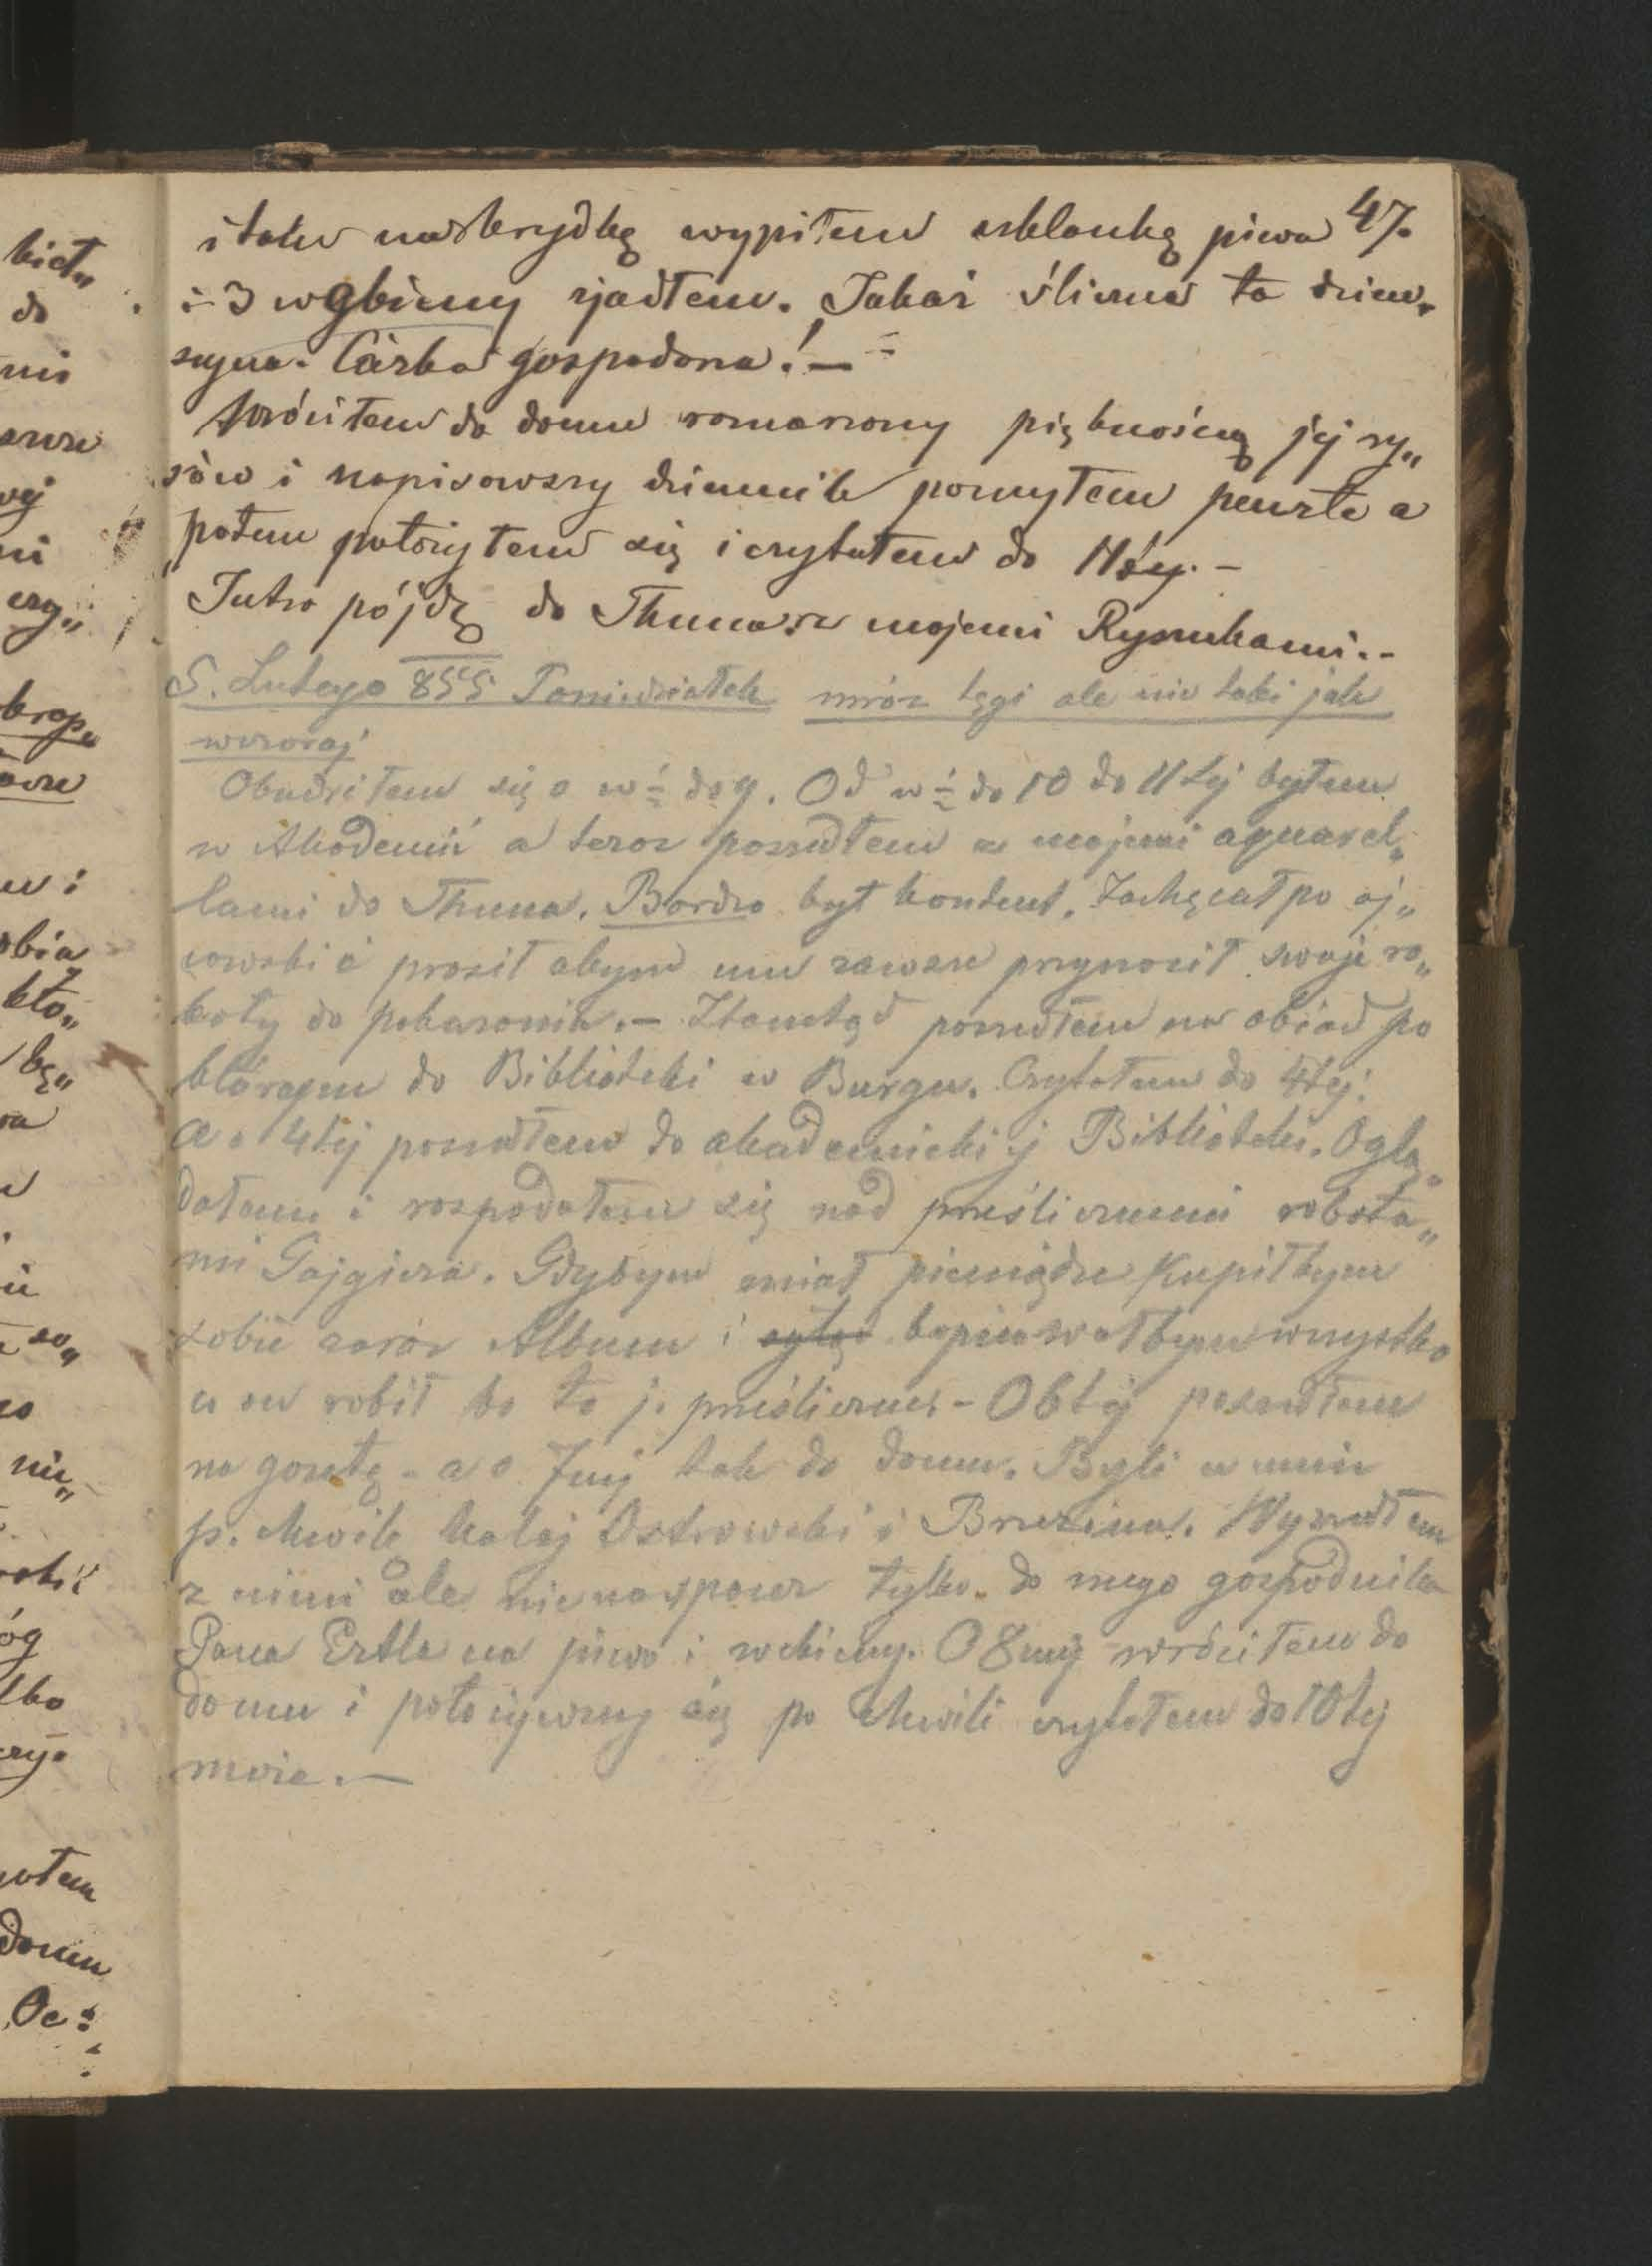 47.
i tak na brydkę wypiłem szklankę piwa
i 3 wębiny zjadłem. Jakaż śliczna ta dziew„
czyna. Córka gospodarza! —
Wróciłem do domu zmarzony pięknością jej ry„
sów i napisawszy dziennik pomyłem penzle a
potem położyłem się i czytałem do 11téj. —
Jutro pójdę do Thuna z mojemi Rysunkami. -
5. Lutego 855 Poniedziałek mróz tęgi ale nie taki jak
wczoraj
Obudziłem się o w ½ do 9. Od w ½ do 10 do 11tej byłem
w Akademii a teraz poszedłem z mojemi aquarel„
lami do Thuna. Bardzo był kontent. Zachęcał po oj„
cowski i prosił abym mu zawsze przynosił swoje ro„
boty do pokazania. — Ztamtąd poszedłem na obiad po
którym do Biblioteki w Burgu. Czytałem do 4tej.
a o 4tej poszedłem do akademickiej Biblioteki. Oglą„
dałem i rozpadałem się nad prześlicznemi robota„
mi Gajgiera. Gdybym miał pieniądze kupiłbym
sobie zaraz Album i kopiowałbym wszystko
co on robił bo to je prześliczne. - O 6tej poszedłem
na gazetę - a o 7mej tak do domu. Byli u mnie
p. chwilę Ostrowski i Brzezina. Wyszedłem
z nimi ale nie na spacer tylko do mego gospodnika
Pana Ertla na piwo i wębiny. O 8mej wróciłem do
domu i położywszy się po chwili czytałem do 10tej
może. —
hict„
do
kto„
bę„
nie„
óg
domu